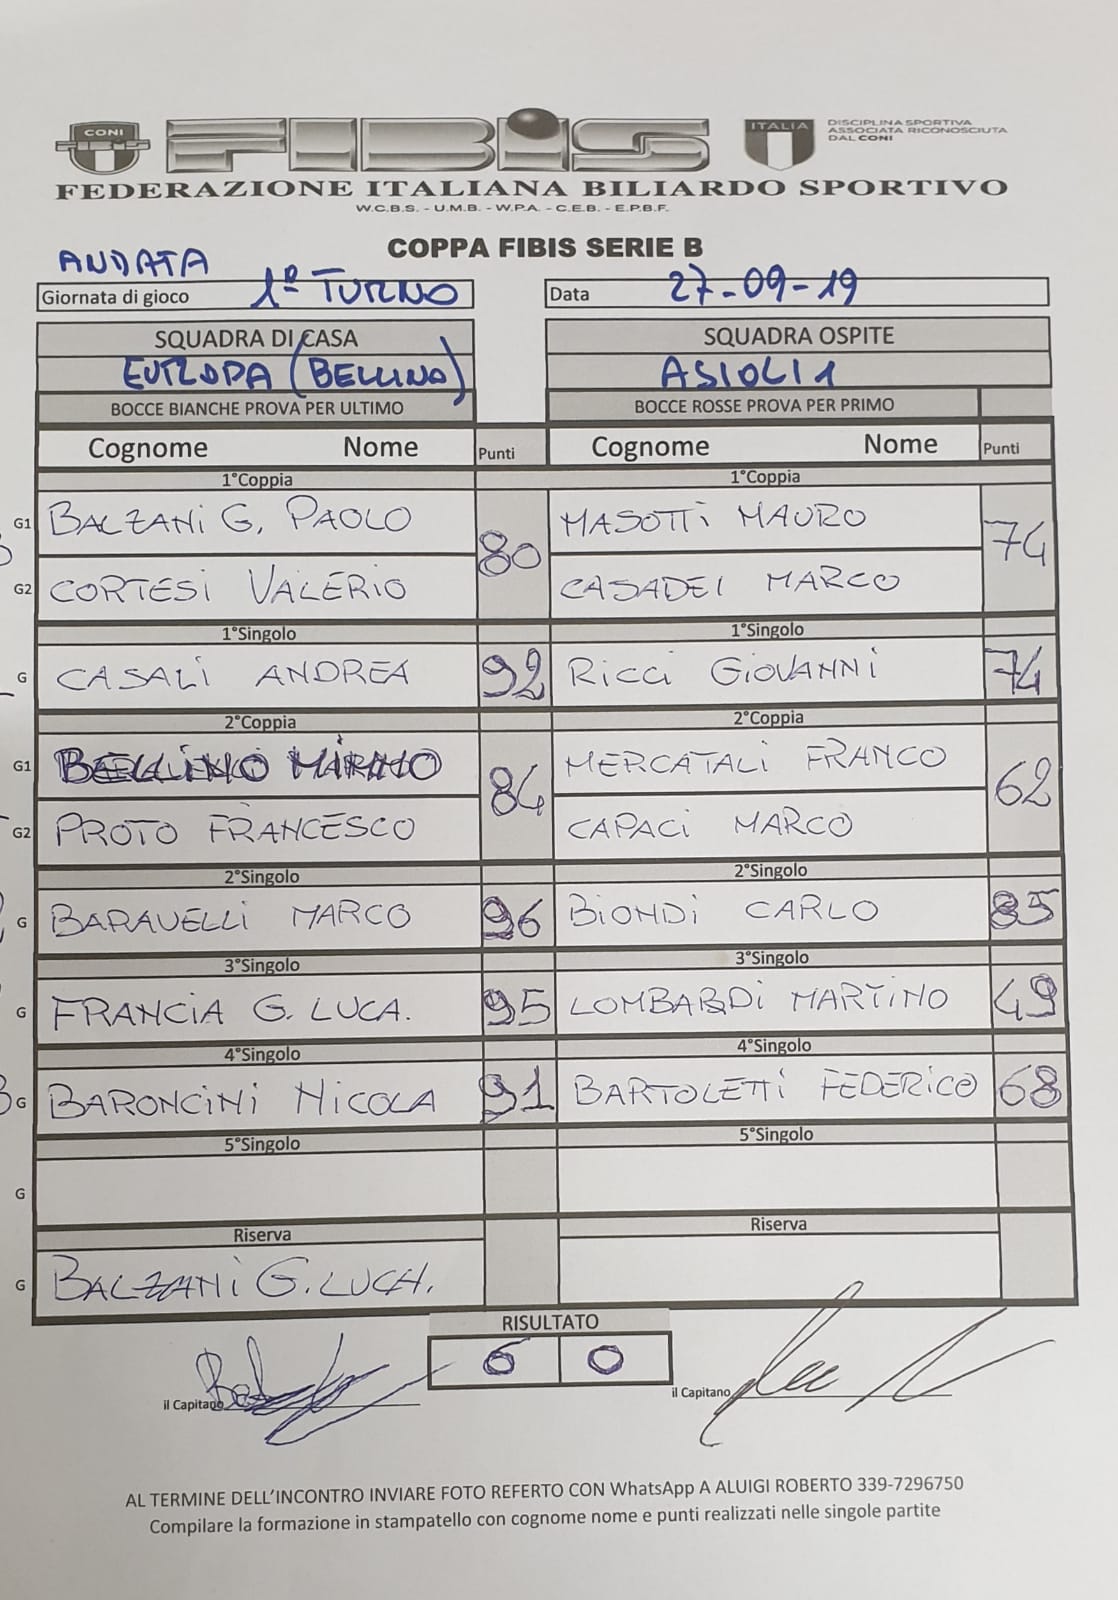 CONI
FIBiS
ITALIA
DISCIPLINA SPORTIVA
ASSOCIATA RICONOSCIUTA
DAL CONI
FEDERAZIONE ITALIANA BILIARDO SPORTIVO
W.C.B.S. - U.M.B. - W.P.A. - C.E.B. - E.P.B.F.
COPPA FIBIS SERIE B
ANDATA
Giornata di gioco 1º TURNO
Data 27-09-19
SQUADRA DI CASA
SQUADRA OSPITE
EUROPA (BELLINO)
ASIOLI 1
BOCCE BIANCHE PROVA PER ULTIMO
BOCCE ROSSE PROVA PER PRIMO
Cognome Nome Punti Cognome Nome Punti
1°Coppia 1°Coppia
G1 BALZANI G. PAOLO 80 MASOTTI MAURO 74
G2 CORTESI VALERIO CASADEI MARCO
1°Singolo 1°Singolo
G CASALI ANDREA 92 RICCI GIOVANNI 74
2°Coppia 2°Coppia
G1 84 MERCATALI FRANCO 62
G2 PROTO FRANCESCO CAPACI MARCO
2°Singolo 2°Singolo
G BARAVELLI MARCO 96 BIONDI CARLO 85
3°Singolo 3°Singolo
G FRANCIA G. LUCA. 95 LOMBARDI MARTINO 49
4°Singolo 4°Singolo
G BARONCINI NICOLA 91 BARTOLETTI FEDERICO 68
5°Singolo 5°Singolo
G
Riserva Riserva
G BALZANI G. LUCA.
RISULTATO
6 0
il Capitano
il Capitano
AL TERMINE DELL'INCONTRO INVIARE FOTO REFERTO CON WhatsApp A ALUIGI ROBERTO 339-7296750
Compilare la formazione in stampatello con cognome nome e punti realizzati nelle singole partite